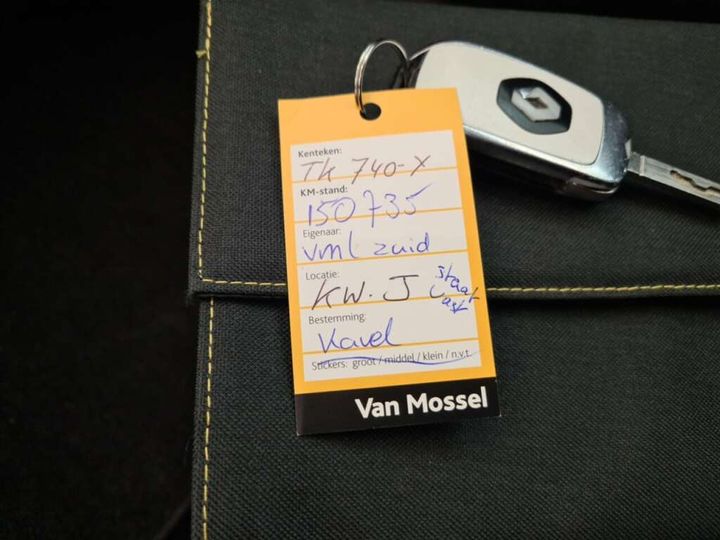 Kenteken:
TK 740-X
KM-stand:
150735
Eigenaar:
vml zuid
Locatie:
KW. J
Bestemming:
Kavel
Stickers: groot / middel / klein / n.v.t.
Van Mossel